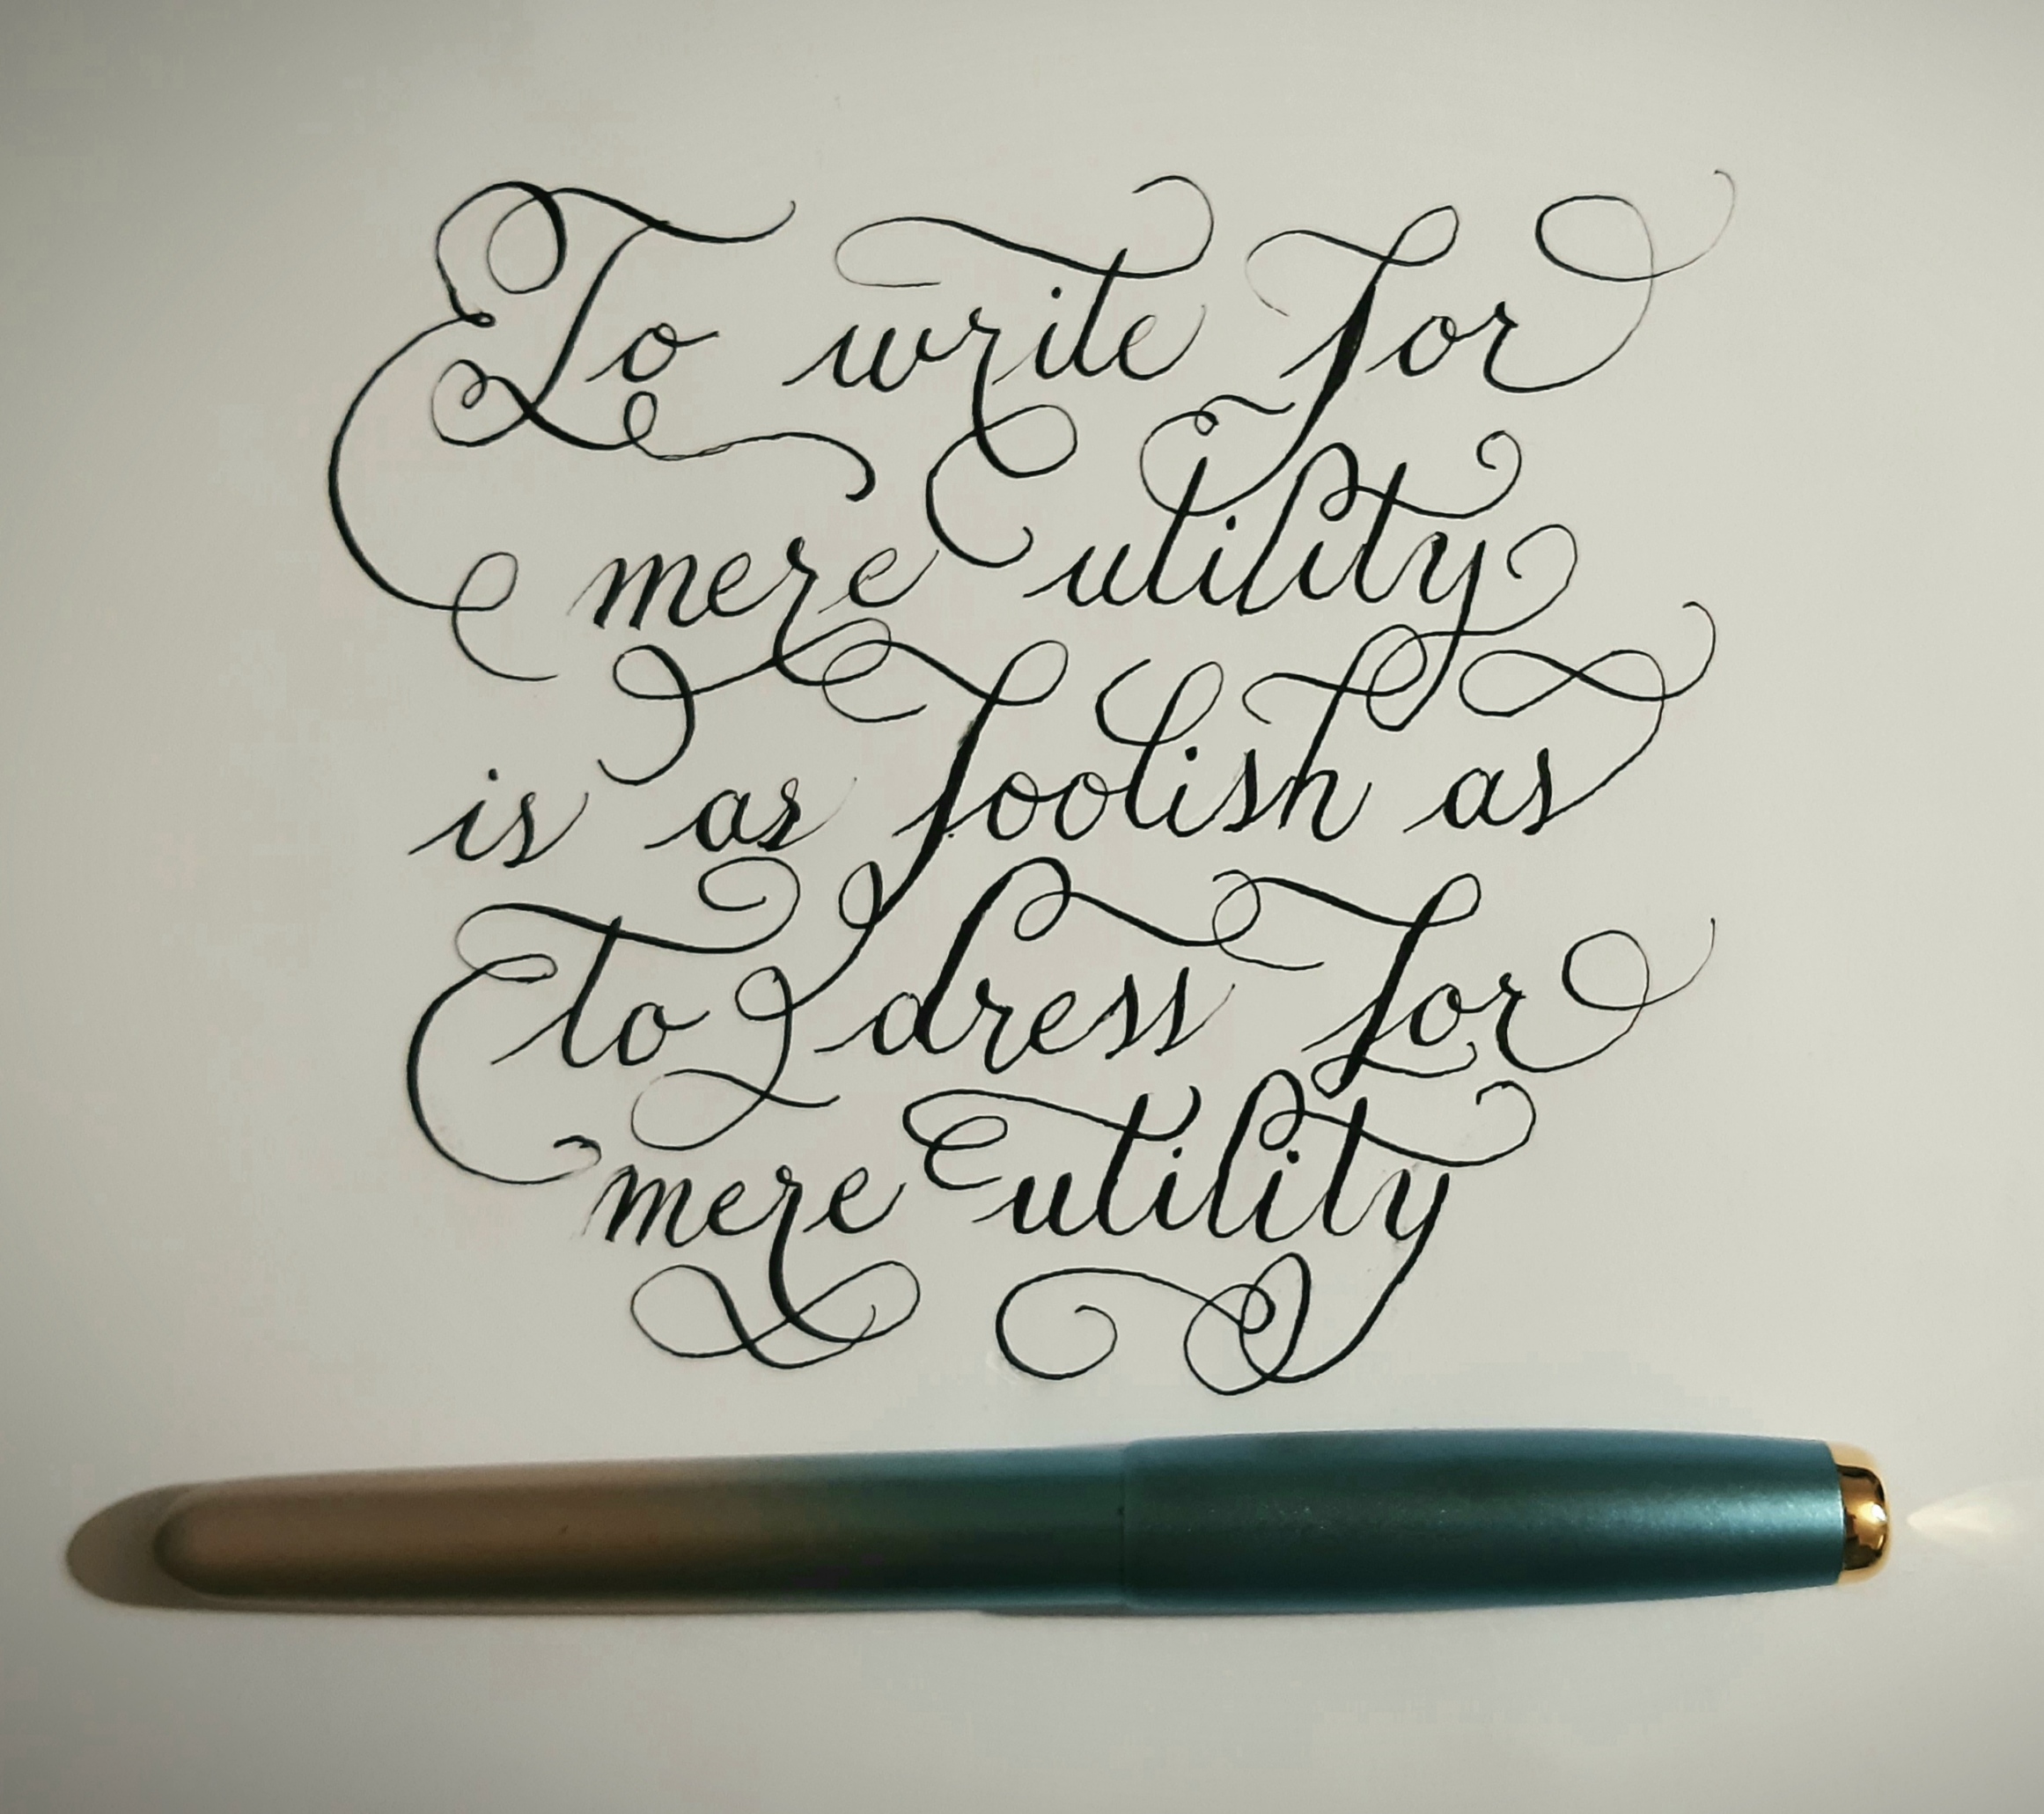 To write for
mere utility
is as foolish as
to dress for
mere utility